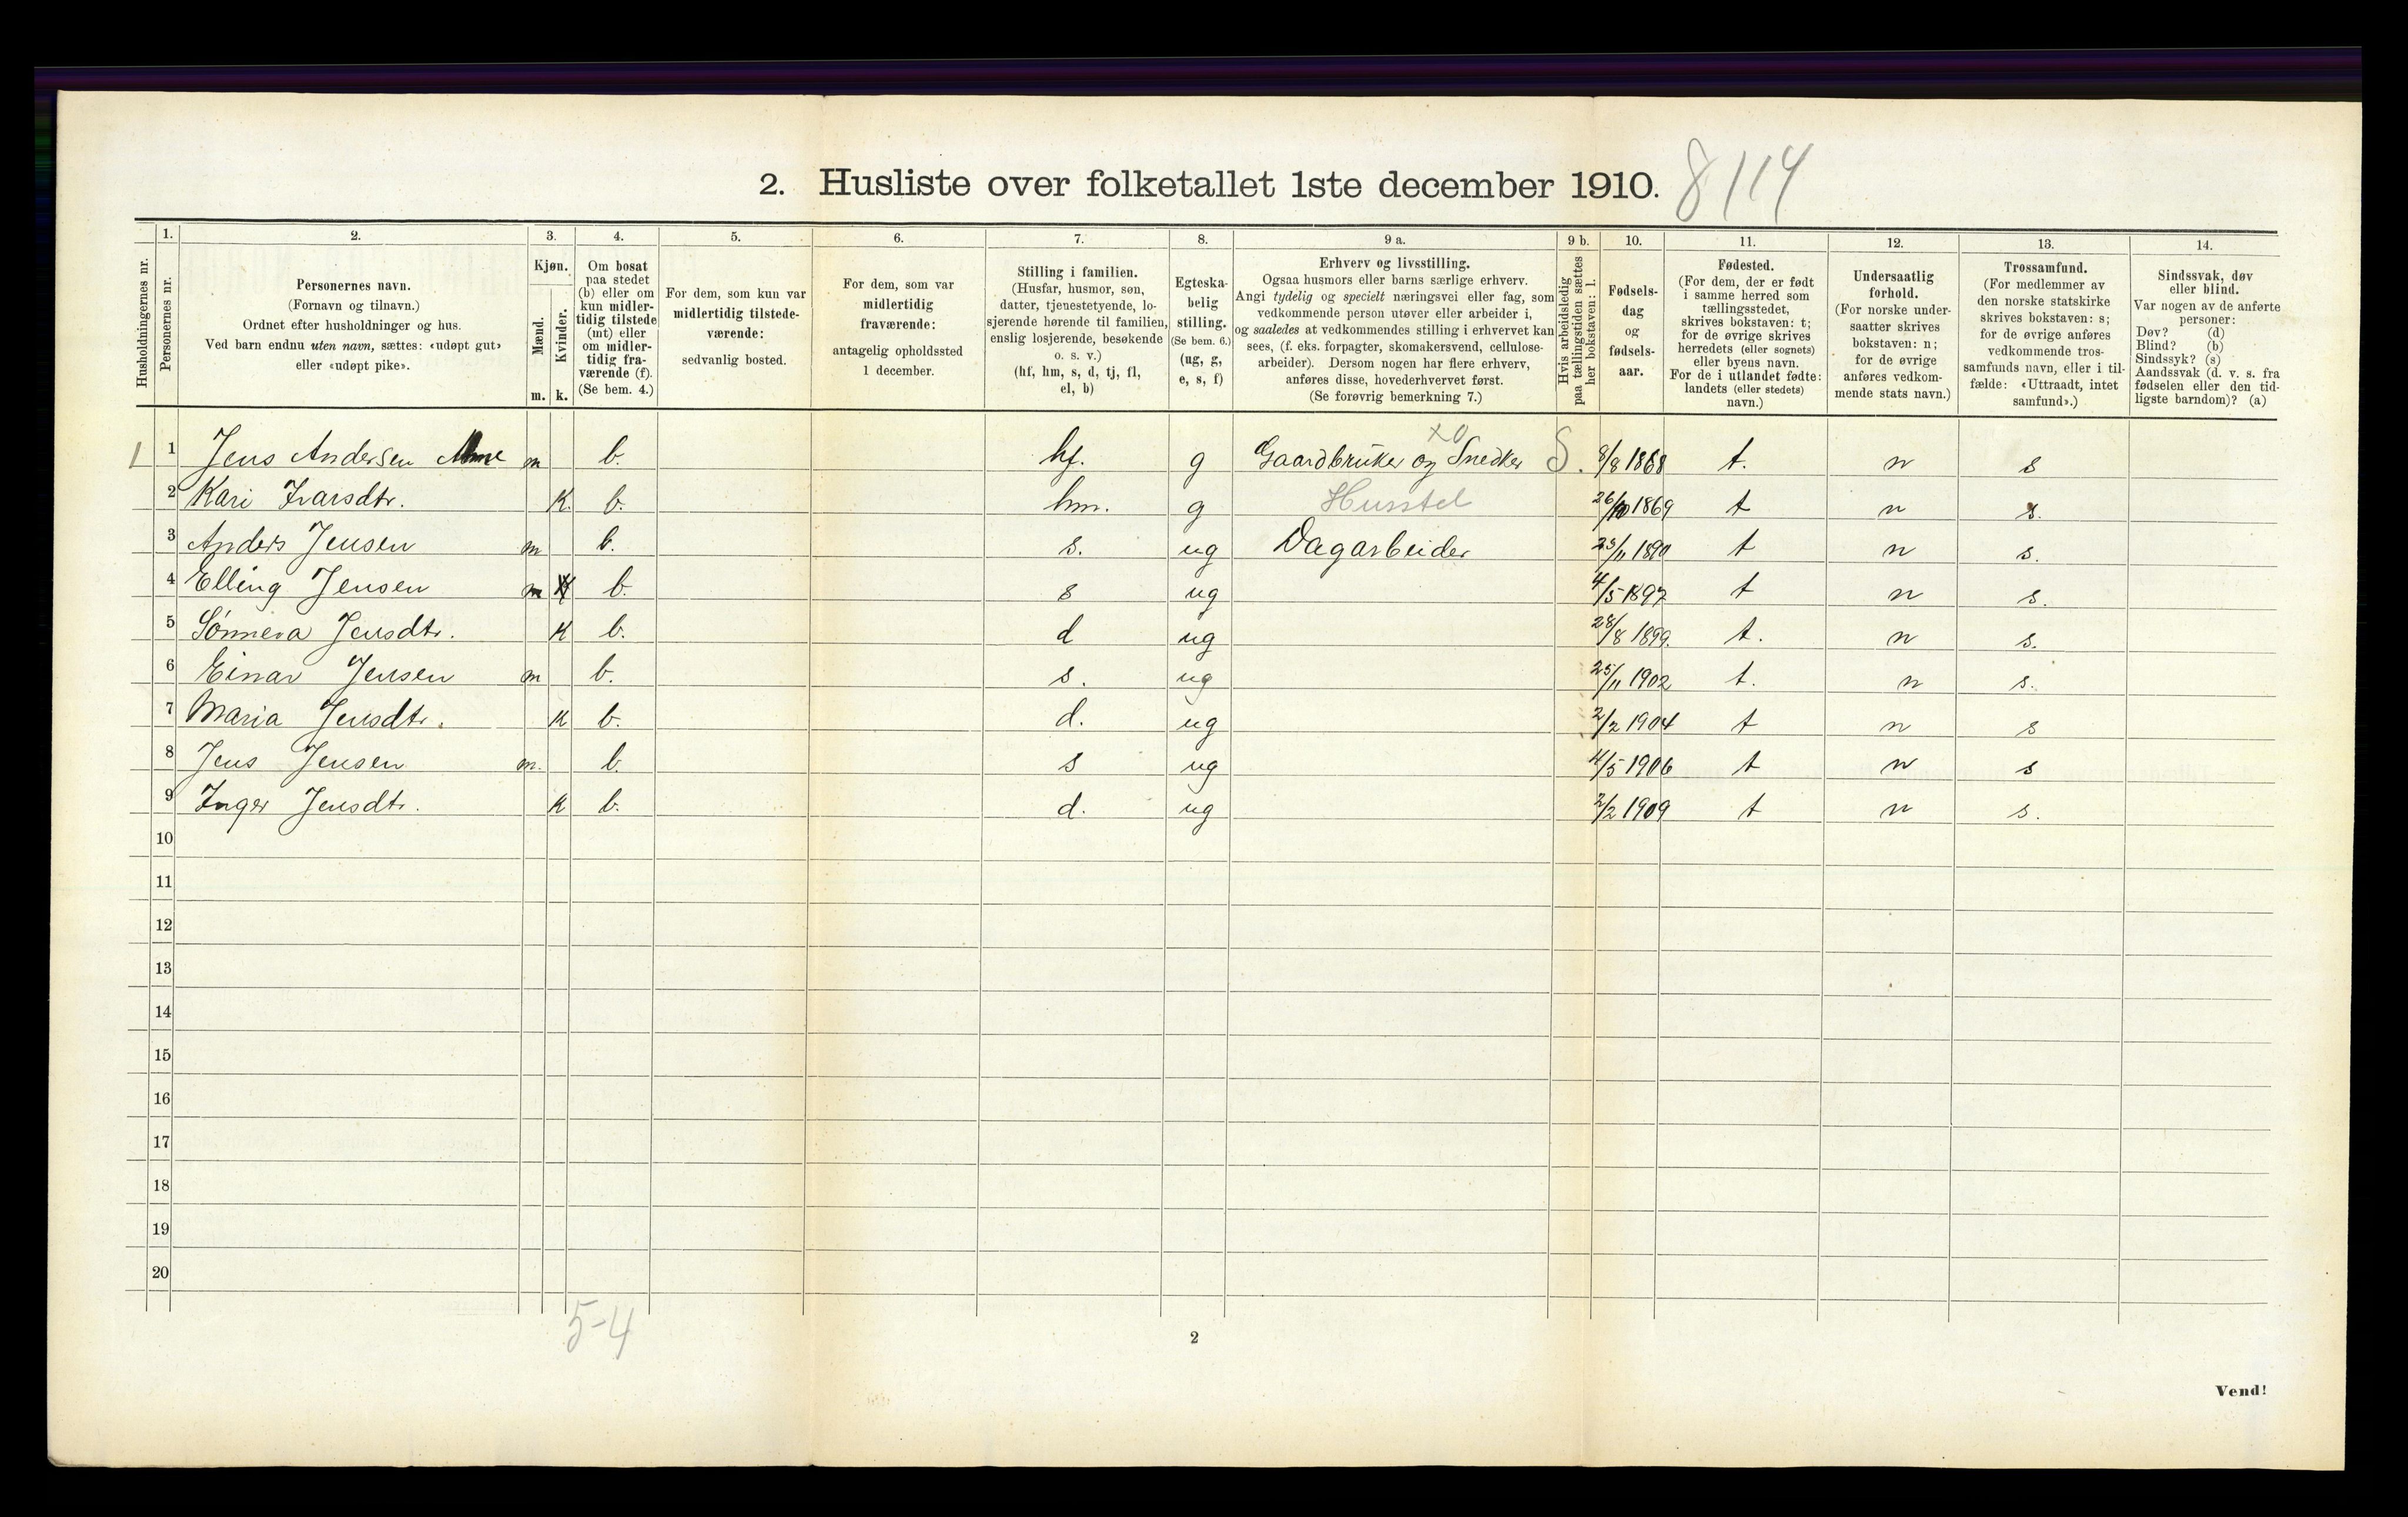 2. Husliste over folketallet 1ste december 1910. 8114
Husholdningernes nr.
1.
Personernes nr.
2.
Personernes navn.
(Fornavn og tilnavn.)
Ordnet efter husholdninger og hus.
Ved barn endnu uten navn, sættes: «udøpt gut»
eller «udøpt pike».
3.
Kjøn.
Mænd.
Kvinder.
m. k.
4.
Om bosat
paa stedet
(b) eller om
kun midler-
tidig tilstede
(mt) eller
om midler-
tidig fra-
værende (f).
(Se bem. 4.)
5.
For dem, som kun var
midlertidig tilstede-
værende:
sedvanlig bosted.
6.
For dem, som var
midlertidig
fraværende:
antagelig opholdssted
1 december.
7.
Stilling i familien.
(Husfar, husmor, søn,
datter, tjenestetyende, lo-
sjerende hørende til familien,
enslig losjerende, besøkende
o. s. v.)
(hf, hm, s, d, tj, fl,
el, b)
8.
Egteska-
belig
stilling.
(Se bem. 6.)
(ug, g,
e, s, f)
9 a.
Erhverv og livsstilling.
Ogsaa husmors eller barns særlige erhverv.
Angi tydelig og specielt næringsvei eller fag, som
vedkommende person utøver eller arbeider i,
og saaledes at vedkommendes stilling i erhvervet kan
sees, (f. eks. forpagter, skomakersvend, cellulose-
arbeider). Dersom nogen har flere erhverv,
anføres disse, hovederhvervet først.
(Se forøvrig bemerkning 7.)
9 b.
Hvis arbeidsledig
paa tællingstiden sættes
her bokstaven: l.
10.
Fødsels-
dag
og
fødsels-
aar.
11.
Fødested.
(For dem, der er født
i samme herred som
tællingsstedet,
skrives bokstaven: t;
for de øvrige skrives
herredets (eller sognets)
eller byens navn.
For de i utlandet fødte:
landets (eller stedets)
navn.)
12.
Undersaatlig
forhold.
(For norske under-
saatter skrives
bokstaven: n;
for de øvrige
anføres vedkom-
mende stats navn.)
13.
Trossamfund.
(For medlemmer av
den norske statskirke
skrives bokstaven: s;
for de øvrige anføres
vedkommende tros-
samfunds navn, eller i til-
fælde: «Uttraadt, intet
samfund».)
14.
Sindssvak, døv
eller blind.
Var nogen av de anførte
personer:
Døv? (d)
Blind? (b)
Sindssyk? (s)
Aandssvak (d. v. s. fra
fødselen eller den tid-
ligste barndom)? (a)
xo
1 1 Jens Andersen m b. hf. g Gaardbruker og Snedker S. 8/8 1868 t. n s
2 Kari Ivarsdtr. K. b. hm. g Husstel 26/10 1869 t n s.
3 Anders Jensen m b. s. ug Dagarbeider 25/11 1890 t n s.
4 Elling Jensen m b. s ug 4/5 1897 t n s.
5 Sønneva Jensdtr. K b. d ug 28/8 1899. t. n s.
6 Einar Jensen m b. s. ug 25/11 1902 t. n s.
7 Maria Jensdtr. K b. d. ug 2/2 1904 t n s
8 Jens Jensen m. b. s ug 4/5 1906 t n s
9 Inger Jensdtr. K b. d. ug 2/2 1909 t n s.
10
11
12
13
14
15
16
17
18
19
20
5-4
2
Vend!